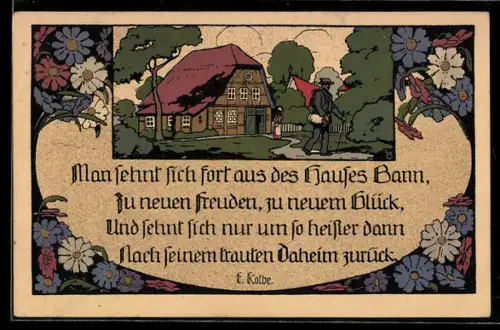 Man sehnt sich fort aus des Hauses Bann,
Zu neuen Freuden, zu neuem Glück,
Und sehnt sich nur um so heißer dann
Nach seinem trauten Daheim zurück.
E. Kolbe.